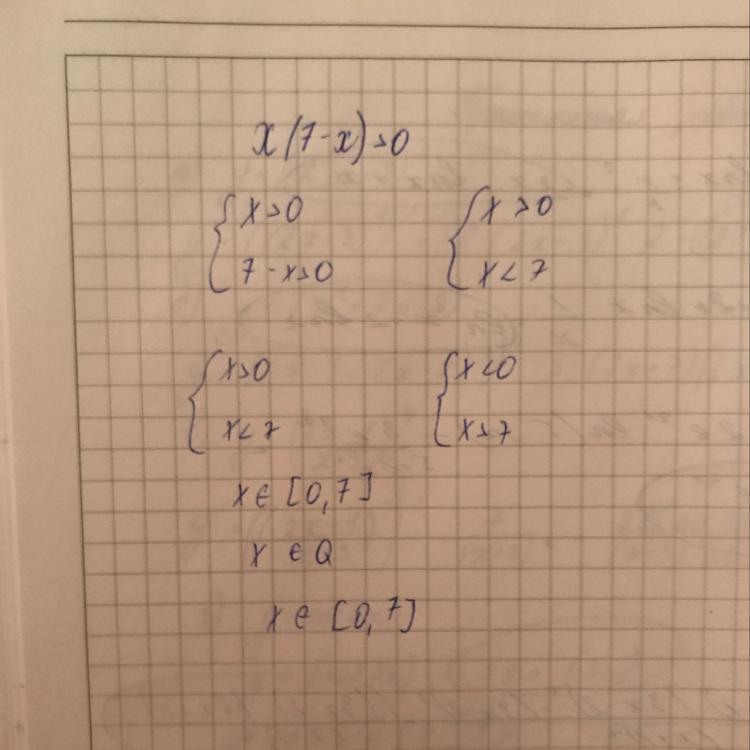 x(7-x)>0
{ x>0 { x>0
7-x>0 x<7
{ x>0 { x<0
x<7 x>7
x∈[0,7]
x ∈ Q
x∈ [0,7]